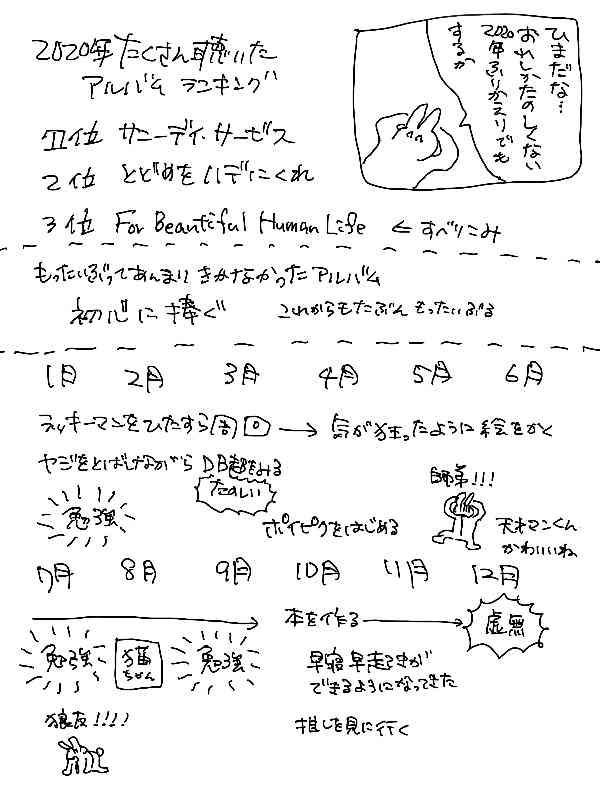 ひまだな…
おれしかたのしくない
2020年ふりかえりでも
するか
2020年たくさん聴いた
アルバム ランキング
1位 サニーデイ・サービス
2位 とどめをハデにくれ
3位 For Beautiful Human Life ← すべりこみ
もったいぶってあんまりきかなかったアルバム
初心に捧ぐ これからもたぶんもったいぶる
1月 2月 3月 4月 5月 6月
ラッキーマンをひたすら周回 → 気が狂ったように絵をかく
ヤジをとばしながらDB超をみる
たのしい
師弟!!!
勉強
ポイピクをはじめる
天才マンくん
かわいいね
7月 8月 9月 10月 11月 12月
本を作る → 虚無
勉強 猫ちゃん 勉強
早寝早起きが
できるようになってきた
狼友!!!!
推しを見に行く